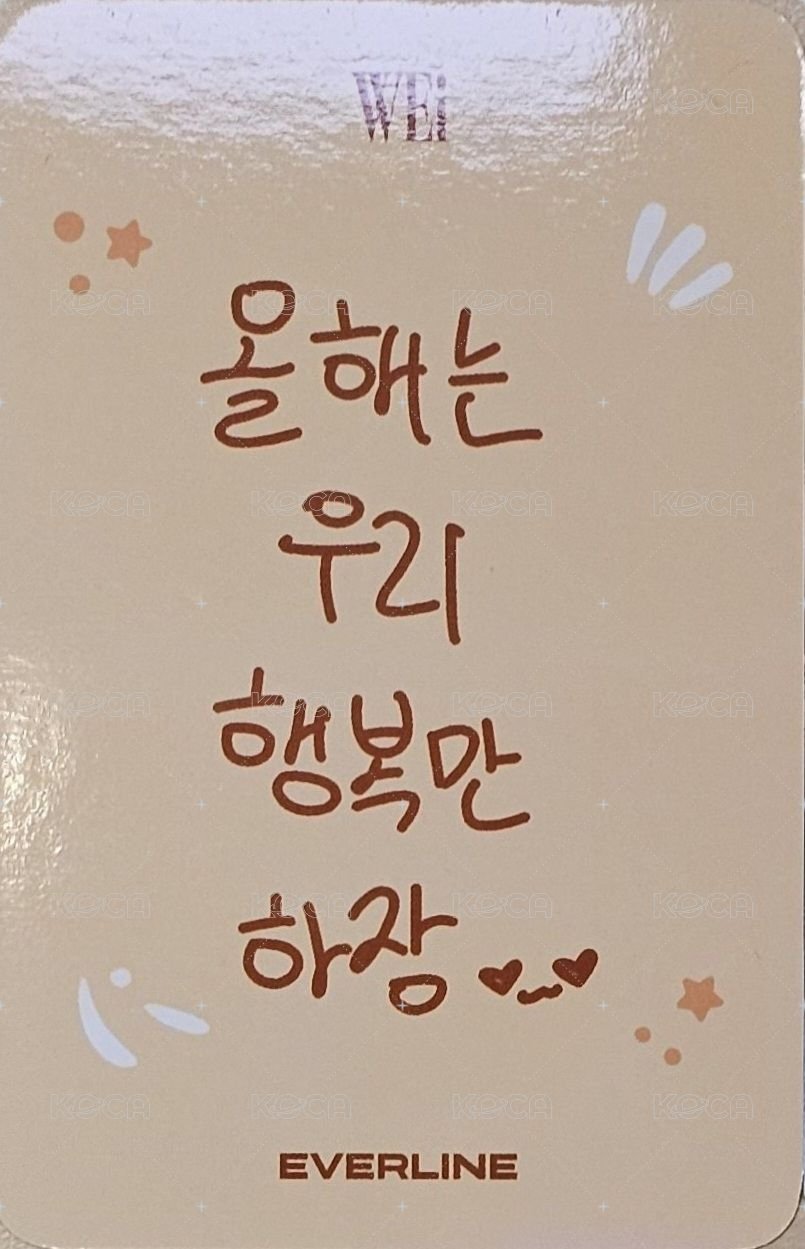 WEi
올해는
우리
행복만
하장
EVERLINE
KOCA